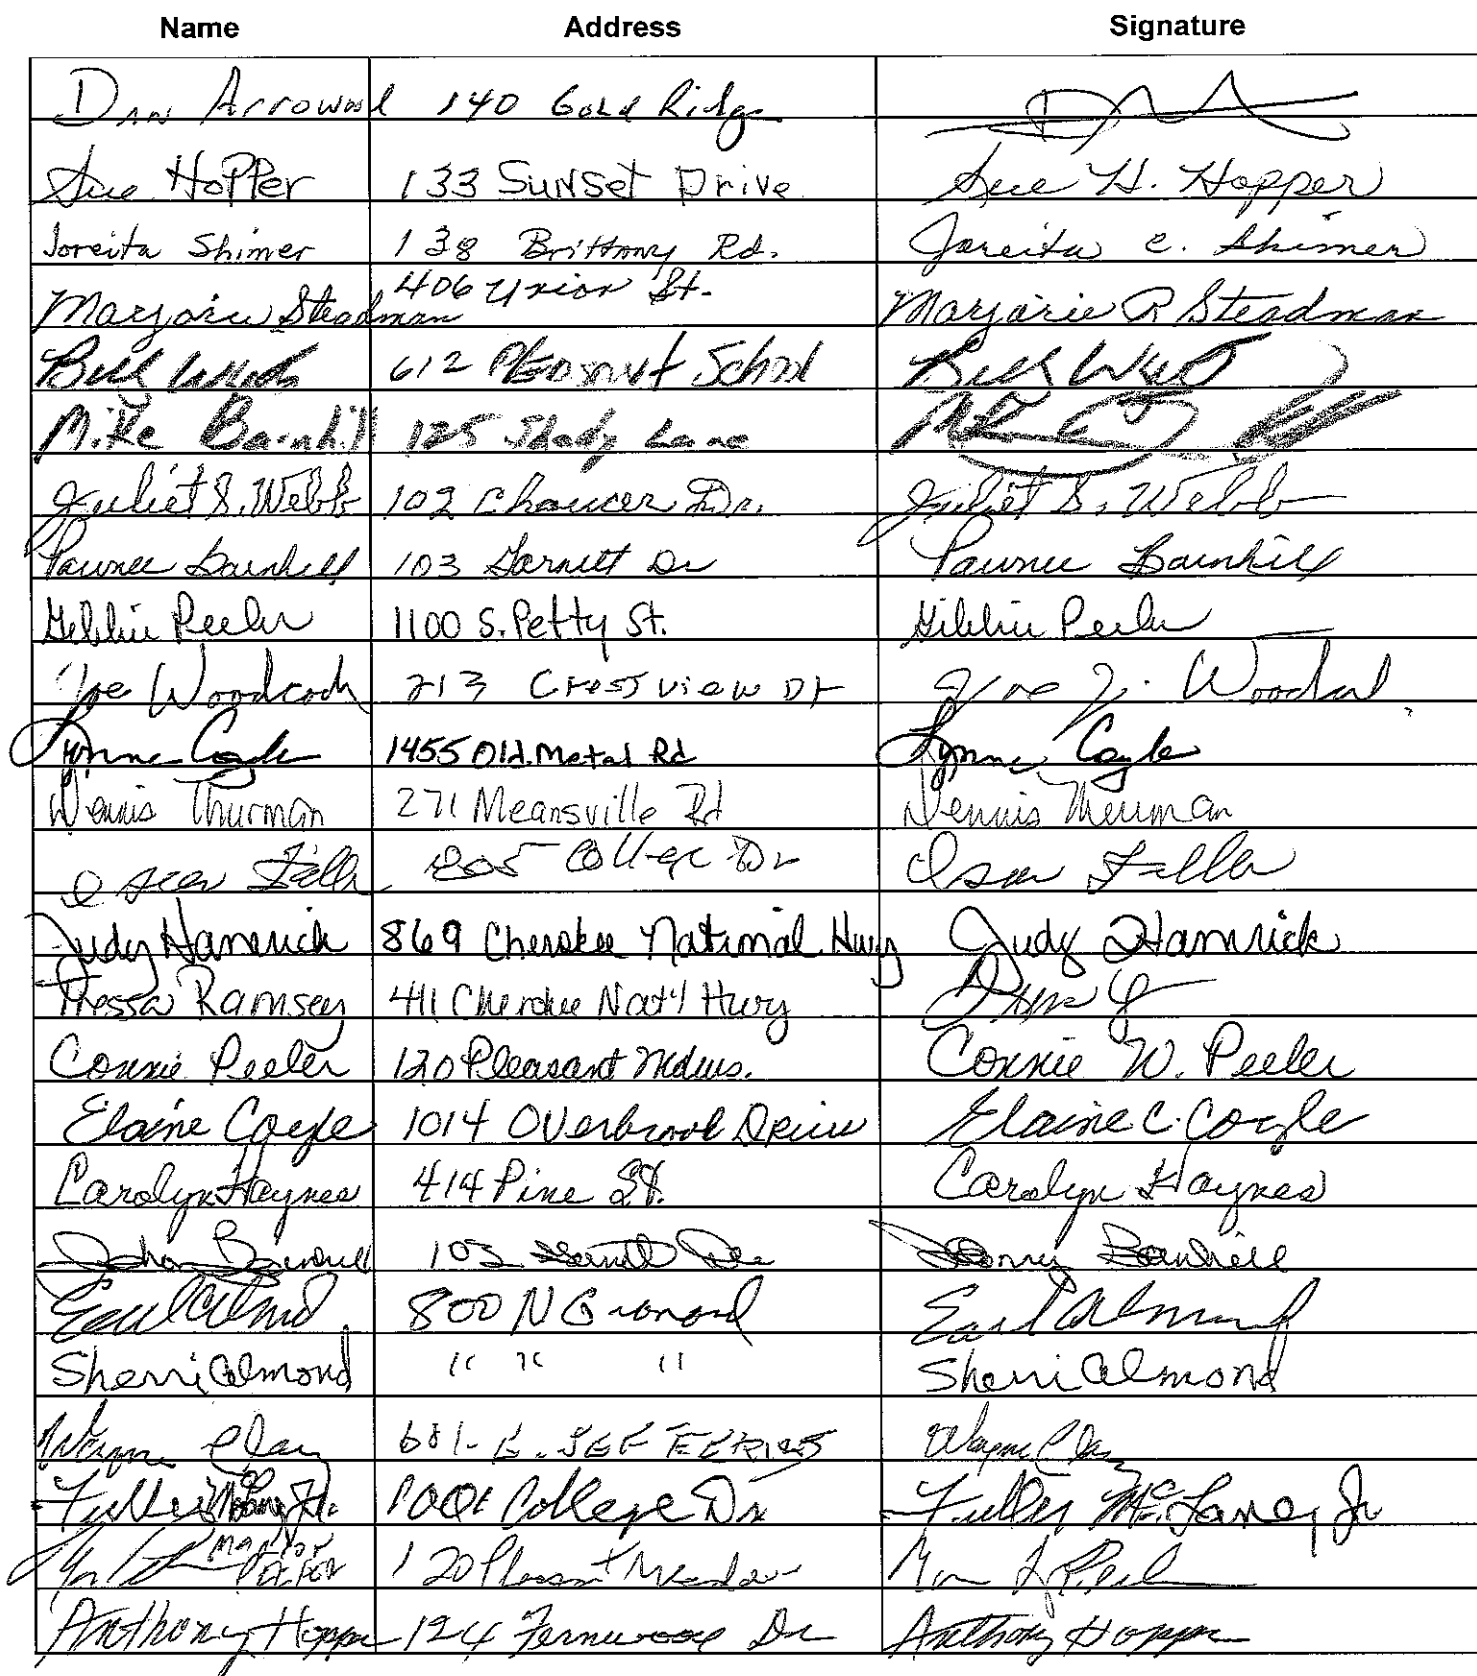 Name Address Signature
Dan Arrowood 140 Gold Ridge
Sue Hopper 133 Sunset Drive Sue H. Hopper
Joreita Shimer 138 Brittony Rd. Joreita C. Shimer
Marjorie Steadman 406 Union St. Marjorie R Steadman
Bill 612 Pleasant School Bill
Mike Barnhill 125 Shady Lane
Juliet S. Webb 102 Chaucer Dr. Juliet S. Webb
Pawnee Barnhill 103 Garnett Dr Pawnee Barnhill
Gibbie Peeler 1100 S. Petty St. Gibbie Peeler
Joe Woodcock 213 Crestview Dr Joe
Lynne Cogle 1455 Old Metal Rd Lynne Cogle
Dennis Thurman 271 Meansville Rd Dennis Thurman
205 College Dr
Judy Hamrick 869 Cherokee National Hwy Judy Hamrick
Tressa Ramsey 411 Cherokee Nat'l Hwy
Connie Peeler 120 Pleasant Mdws. Connie W. Peeler
Elaine Cogle 1014 Overbrook Drive Elaine C. Cogle
Carolyn Haynes 414 Pine St. Carolyn Haynes
Barnhill 103 Garnett Dr Barnhill
Earl Almond 800 N Granard Earl Almond
Sherri Almond " " " Sherri Almond
Wayne Clary 601 E. JEFFERIES Wayne Clary
Fuller College Dr Fuller McLaney Jr
120 Pleasant Meadow
Anthony Hopper 124 Fernwood Dr Anthony Hopper